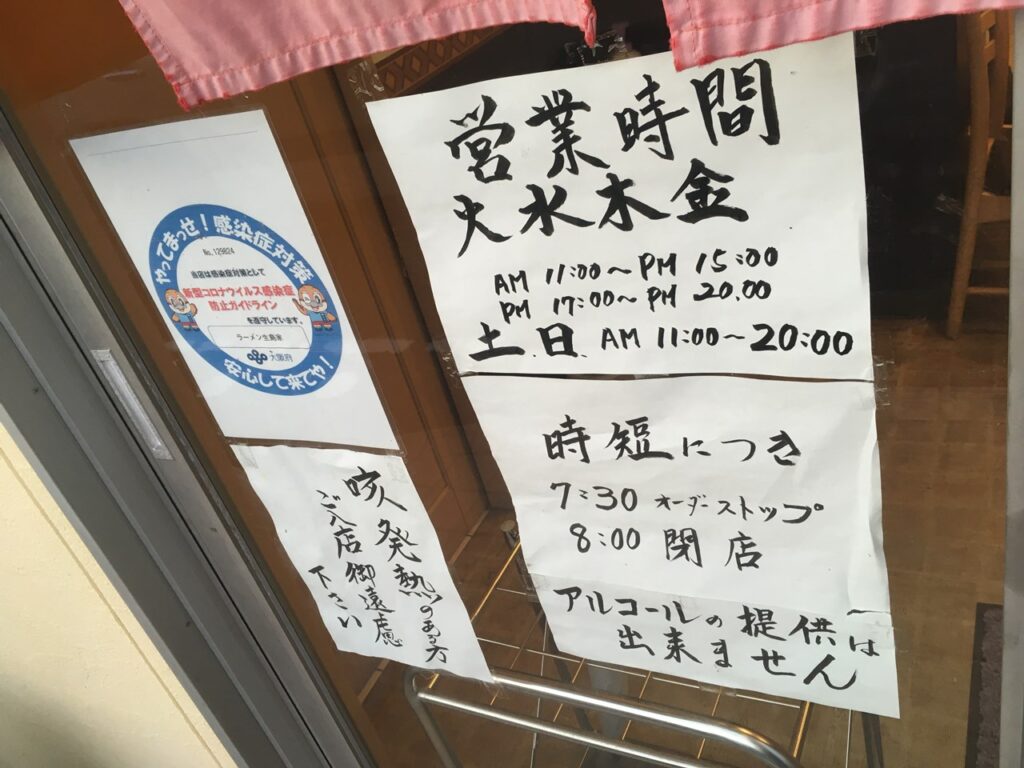 営業時間
火水木金
AM 11:00～PM 15:00
PM 17:00～PM 20.00
土.日. AM 11:00～20:00
時短につき
7:30 オーダーストップ
8:00 閉店
アルコールの提供は
出来ません
やってまっせ！感染症対策
No. 129824
当店は感染症対策として
新型コロナウイルス感染症
防止ガイドライン
を遵守しています。
大阪府
安心して来てや！
咳、発熱のある方
ご入店御遠慮
下さい